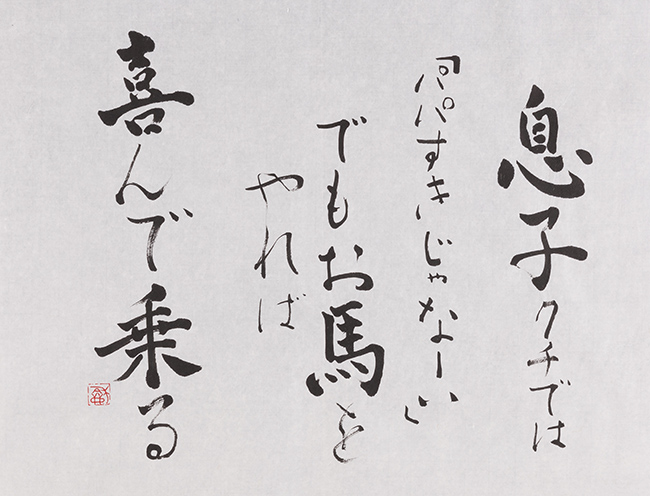 息子クチでは
「パパすきじゃなーい」
でもお馬を
やれば
喜んで乗る